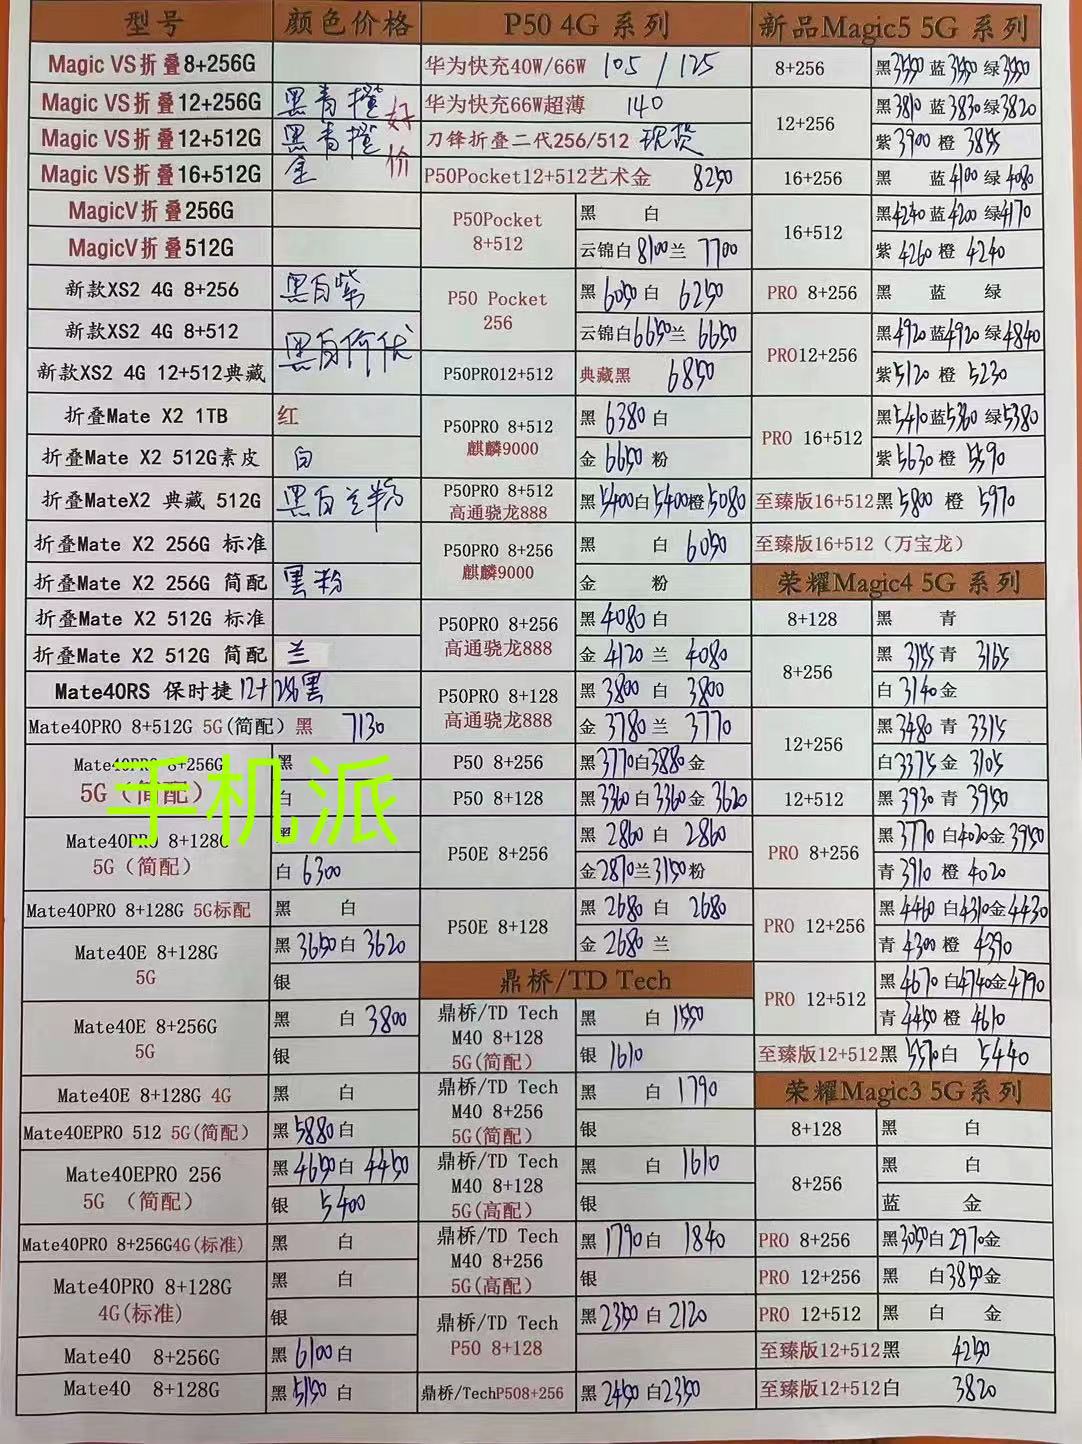 型号 颜色价格 P50 4G 系列 新品Magic5 5G 系列
Magic VS折叠8+256G 华为快充40W/66W 105 / 125 8+256 黑3550 蓝3550 绿3550
Magic VS折叠12+256G 黑青橙 好价 华为快充66W超薄 140 12+256 黑3810 蓝3830 绿3820
Magic VS折叠12+512G 黑青橙 刀锋折叠二代256/512 现货 紫3900 橙3855
Magic VS折叠16+512G 金 P50Pocket12+512艺术金 8250 16+256 黑 蓝4100 绿4080
MagicV折叠256G P50Pocket 8+512 黑 白 16+512 黑4240 蓝4200 绿4170
MagicV折叠512G 云锦白8100 兰 7700 紫4260 橙4240
新款XS2 4G 8+256 黑白紫 P50 Pocket 256 黑6050 白 6250 PRO 8+256 黑 蓝 绿
新款XS2 4G 8+512 黑白价优 云锦白6650 兰 6650 PRO12+256 黑4920 蓝4920 绿4840
新款XS2 4G 12+512典藏 P50PRO12+512 典藏黑 6850 紫5120 橙 5230
折叠Mate X2 1TB 红 P50PRO 8+512 麒麟9000 黑 6380 白 PRO 16+512 黑5410 蓝5360 绿5380
折叠Mate X2 512G素皮 白 金 6650 粉 紫5630 橙 5590
折叠MateX2 典藏 512G 黑白兰粉 P50PRO 8+512 高通骁龙888 黑5400 白5400 橙5080 至臻版16+512 黑 5800 橙 5970
折叠Mate X2 256G 标准 P50PRO 8+256 麒麟9000 黑 白 6050 至臻版16+512（万宝龙）
折叠Mate X2 256G 简配 黑粉 金 粉 荣耀Magic4 5G 系列
折叠Mate X2 512G 标准 P50PRO 8+256 高通骁龙888 黑4080 白 8+128 黑 青
折叠Mate X2 512G 简配 兰 金 4120 兰 4080 8+256 黑 3155 青 3165
Mate40RS 保时捷 12+256黑 P50PRO 8+128 高通骁龙888 黑3800 白 3800 白3140 金
Mate40PRO 8+512G 5G(简配) 黑 7130 金 3780 兰 3770 12+256 黑3480 青 3315
Mate40PRO 8+256G 5G（简配） 黑 P50 8+256 黑3770 白3880 金 白3375 金 3105
手机派
白 P50 8+128 黑3360 白3360 金 3620 12+512 黑 3930 青 3950
Mate40PRO 8+128G 5G（简配） 黑 P50E 8+256 黑 2860 白 2860 PRO 8+256 黑3770 白4020 金3950
白 6300 金2870 兰3150 粉 青3910 橙 4020
Mate40PRO 8+128G 5G标配 黑 白 P50E 8+128 黑 2680 白 2680 PRO 12+256 黑4460 白4310 金4430
Mate40E 8+128G 5G 黑3650 白 3620 金 2680 兰 青 4300 橙 4390
银 鼎桥/TD Tech PRO 12+512 黑4670 白4740 金4790
Mate40E 8+256G 5G 黑 白 3800 鼎桥/TD Tech M40 8+128 5G(简配) 黑 白 1550 青 4450 橙 4610
银 银 1610 至臻版12+512 黑 5570 白 5440
Mate40E 8+128G 4G 黑 白 鼎桥/TD Tech M40 8+256 5G(简配) 黑 白 1790 荣耀Magic3 5G系列
Mate40EPRO 512 5G(简配) 黑5880 白 银 8+128 黑 白
Mate40EPRO 256 5G （简配） 黑 4650 白 4450 鼎桥/TD Tech M40 8+128 5G(高配) 黑 白 1610 8+256 黑 白
银 5400 银 蓝 金
Mate40PRO 8+256G4G(标准) 黑 白 鼎桥/TD Tech M40 8+256 5G(高配) 黑 1790 白 1840 PRO 8+256 黑3050 白2970 金
Mate40PRO 8+128G 4G(标准) 黑 白 银 PRO 12+256 黑 白3850 金
银 鼎桥/TD Tech P50 8+128 黑2350 白 2120 PRO 12+512 黑 白 金
Mate40 8+256G 黑 6100 白 至臻版12+512 黑 4250
Mate40 8+128G 黑 5150 白 鼎桥/TechP508+256 黑 2450 白2350 至臻版12+512 白 3820